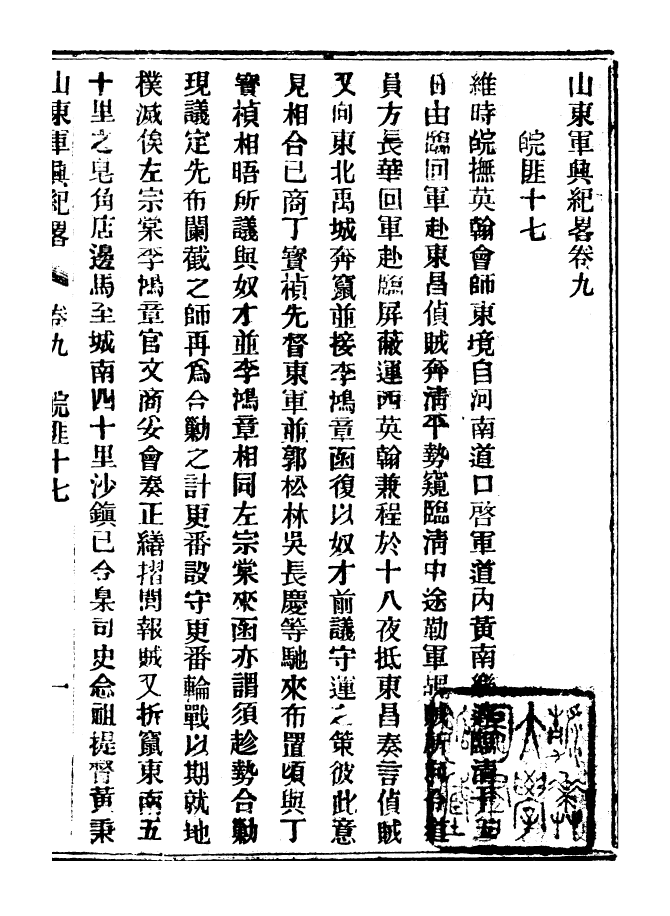 山東軍興紀畧卷九
皖匪十七
維時皖撫英翰會師東境自河南道口啓軍道內黃南樂達臨清十五
日由臨回軍赴東昌偵賊奔清平勢窺臨清中途勒軍堵賊折向令道
員方長華回軍赴臨屏蔽運西英翰兼程於十八夜抵東昌奏言偵賊
又向東北禹城奔竄並接李鴻章函復以奴才前議守運之策彼此意
見相合已商丁寶楨先督東軍並郭松林吳長慶等馳來布置頃與丁
寶楨相晤所議與奴才並李鴻章相同左宗棠來函亦謂須趁勢合勦
現議定先布闌截之師再為合勦之計更番設守更番輪戰以期就地
樸滅俟左宗棠李鴻章官文商妥會奏正繕摺間報賊又折竄東南五
十里之皂角店邊馬至城南四十里沙鎮已令臬司史念祖提督黃秉
山東軍興紀畧 卷九 皖匪十七 一